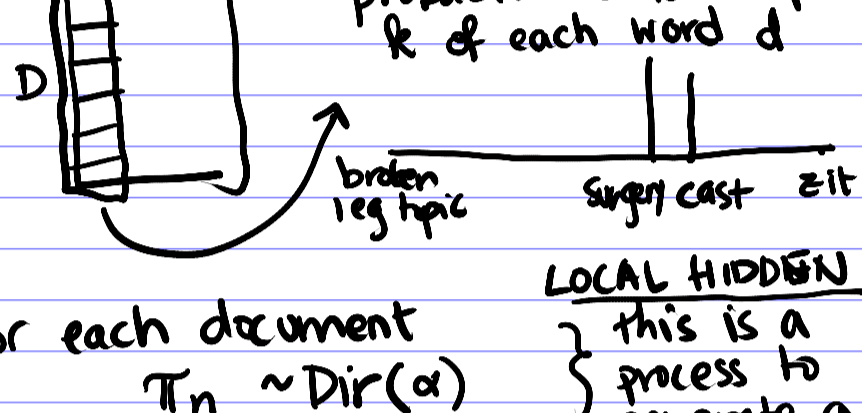 k of each word d
D
broken
leg topic
surgery cast zit
LOCAL HIDDEN
for each document
this is a
πn ~ Dir(α)
} process to